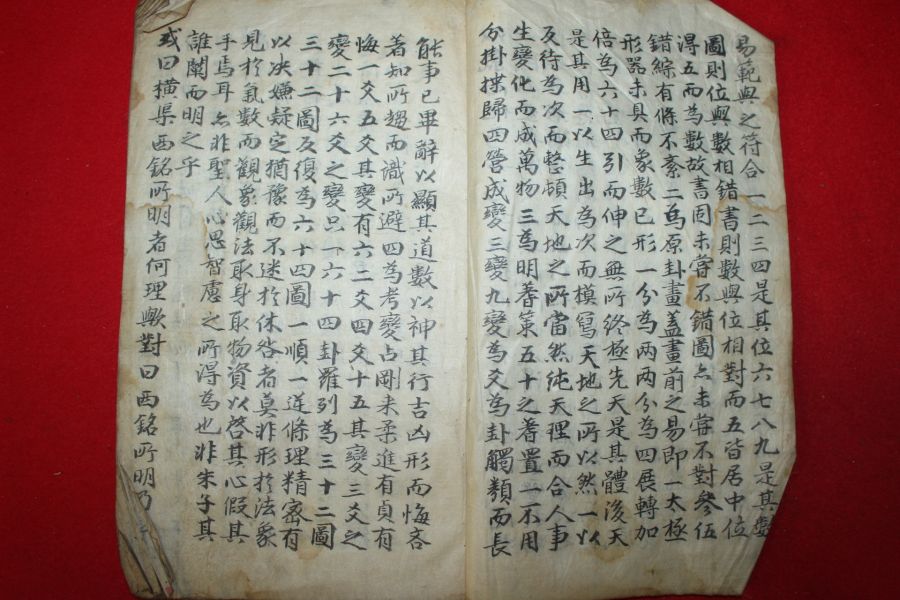 易範與之符合一二三四是其位六七八九是其數
圖則位與數相錯書則數與位相對而五皆居中位
淂五而為數故書固未嘗不錯圖亦未嘗不對參伍
錯綜有條不紊二為原卦畫盖畫前之易即一太極
形器未具而象數已形一分為兩兩分為四展轉加
倍為六十四引而伸之無所終極先天是其體後天
是其用一以生出為次而模寫天地之所以然一以
反待為次而整頓天地之所當然純天理而合人事
生變化而成萬物三為明蓍策五十之蓍置一不用
分掛揲歸四營成變三變九變為爻為卦觸類而長
能事已畢辭以顯其道數以神其行吉凶形而悔吝
著知所趨而識所避四為考變占剛来柔進有貞有
悔一爻五爻其變有六二爻四爻十五其變三爻之
變二十六爻之變只一六十四卦羅列為三十二圖
三十二圖反復為六十四圖一順一逆條理精密有
以决嫌疑定猶豫而不迷於休咎者莫非形於法象
見於氣數而觀象觀法取身取物資以啓其心假其
手焉耳亦非聖人心思智慮之所得為也非朱子其
誰闡而明之乎
或曰橫渠西銘所明者何理歟對曰西銘所明乃